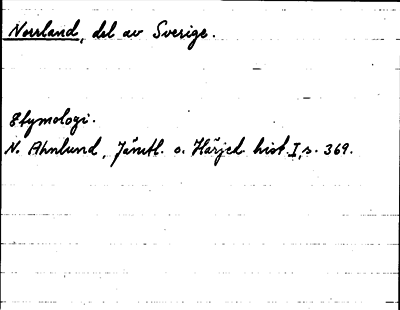 Norrland, del av Sverige.
Etymologi.
N. Ahnlund, Jämtl. o. Härjed. hist. I, s. 369.